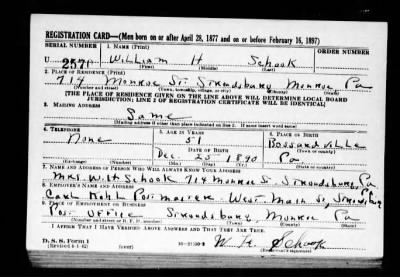 REGISTRATION CARD—(Men born on or after April 28, 1877 and on or before February 16, 1897)
SERIAL NUMBER 1. NAME (Print) ORDER NUMBER
U 257 William H Schook
(First) (Middle) (Last)
2. PLACE OF RESIDENCE (Print)
714 Monroe St. Stroudsburg Monroe Pa
(Number and street) (Town, township, village, or city) (County) (State)
[THE PLACE OF RESIDENCE GIVEN ON THE LINE ABOVE WILL DETERMINE LOCAL BOARD
JURISDICTION; LINE 2 OF REGISTRATION CERTIFICATE WILL BE IDENTICAL]
3. MAILING ADDRESS
Same
[Mailing address if other than place indicated on line 2. If same insert word same]
4. TELEPHONE 5. AGE IN YEARS 6. PLACE OF BIRTH
None 51 Bossardville
DATE OF BIRTH (Town or county)
Dec. 25 1890 Pa
(Exchange) (Number) (Mo.) (Day) (Yr.) (State or country)
7. NAME AND ADDRESS OF PERSON WHO WILL ALWAYS KNOW YOUR ADDRESS
Mrs W. H. Schook 714 Monroe St. Stroudsburg, Pa
8. EMPLOYER'S NAME AND ADDRESS
Carl Kohl Postmaster West Main St, Stroudsburg
9. PLACE OF EMPLOYMENT OR BUSINESS
Post Office Stroudsburg, Monroe Pa
(Number and street or R. F. D. number) (Town) (County) (State)
I AFFIRM THAT I HAVE VERIFIED ABOVE ANSWERS AND THAT THEY ARE TRUE.
D. S. S. Form 1
(Revised 4-1-42) (over) W. H. Schook